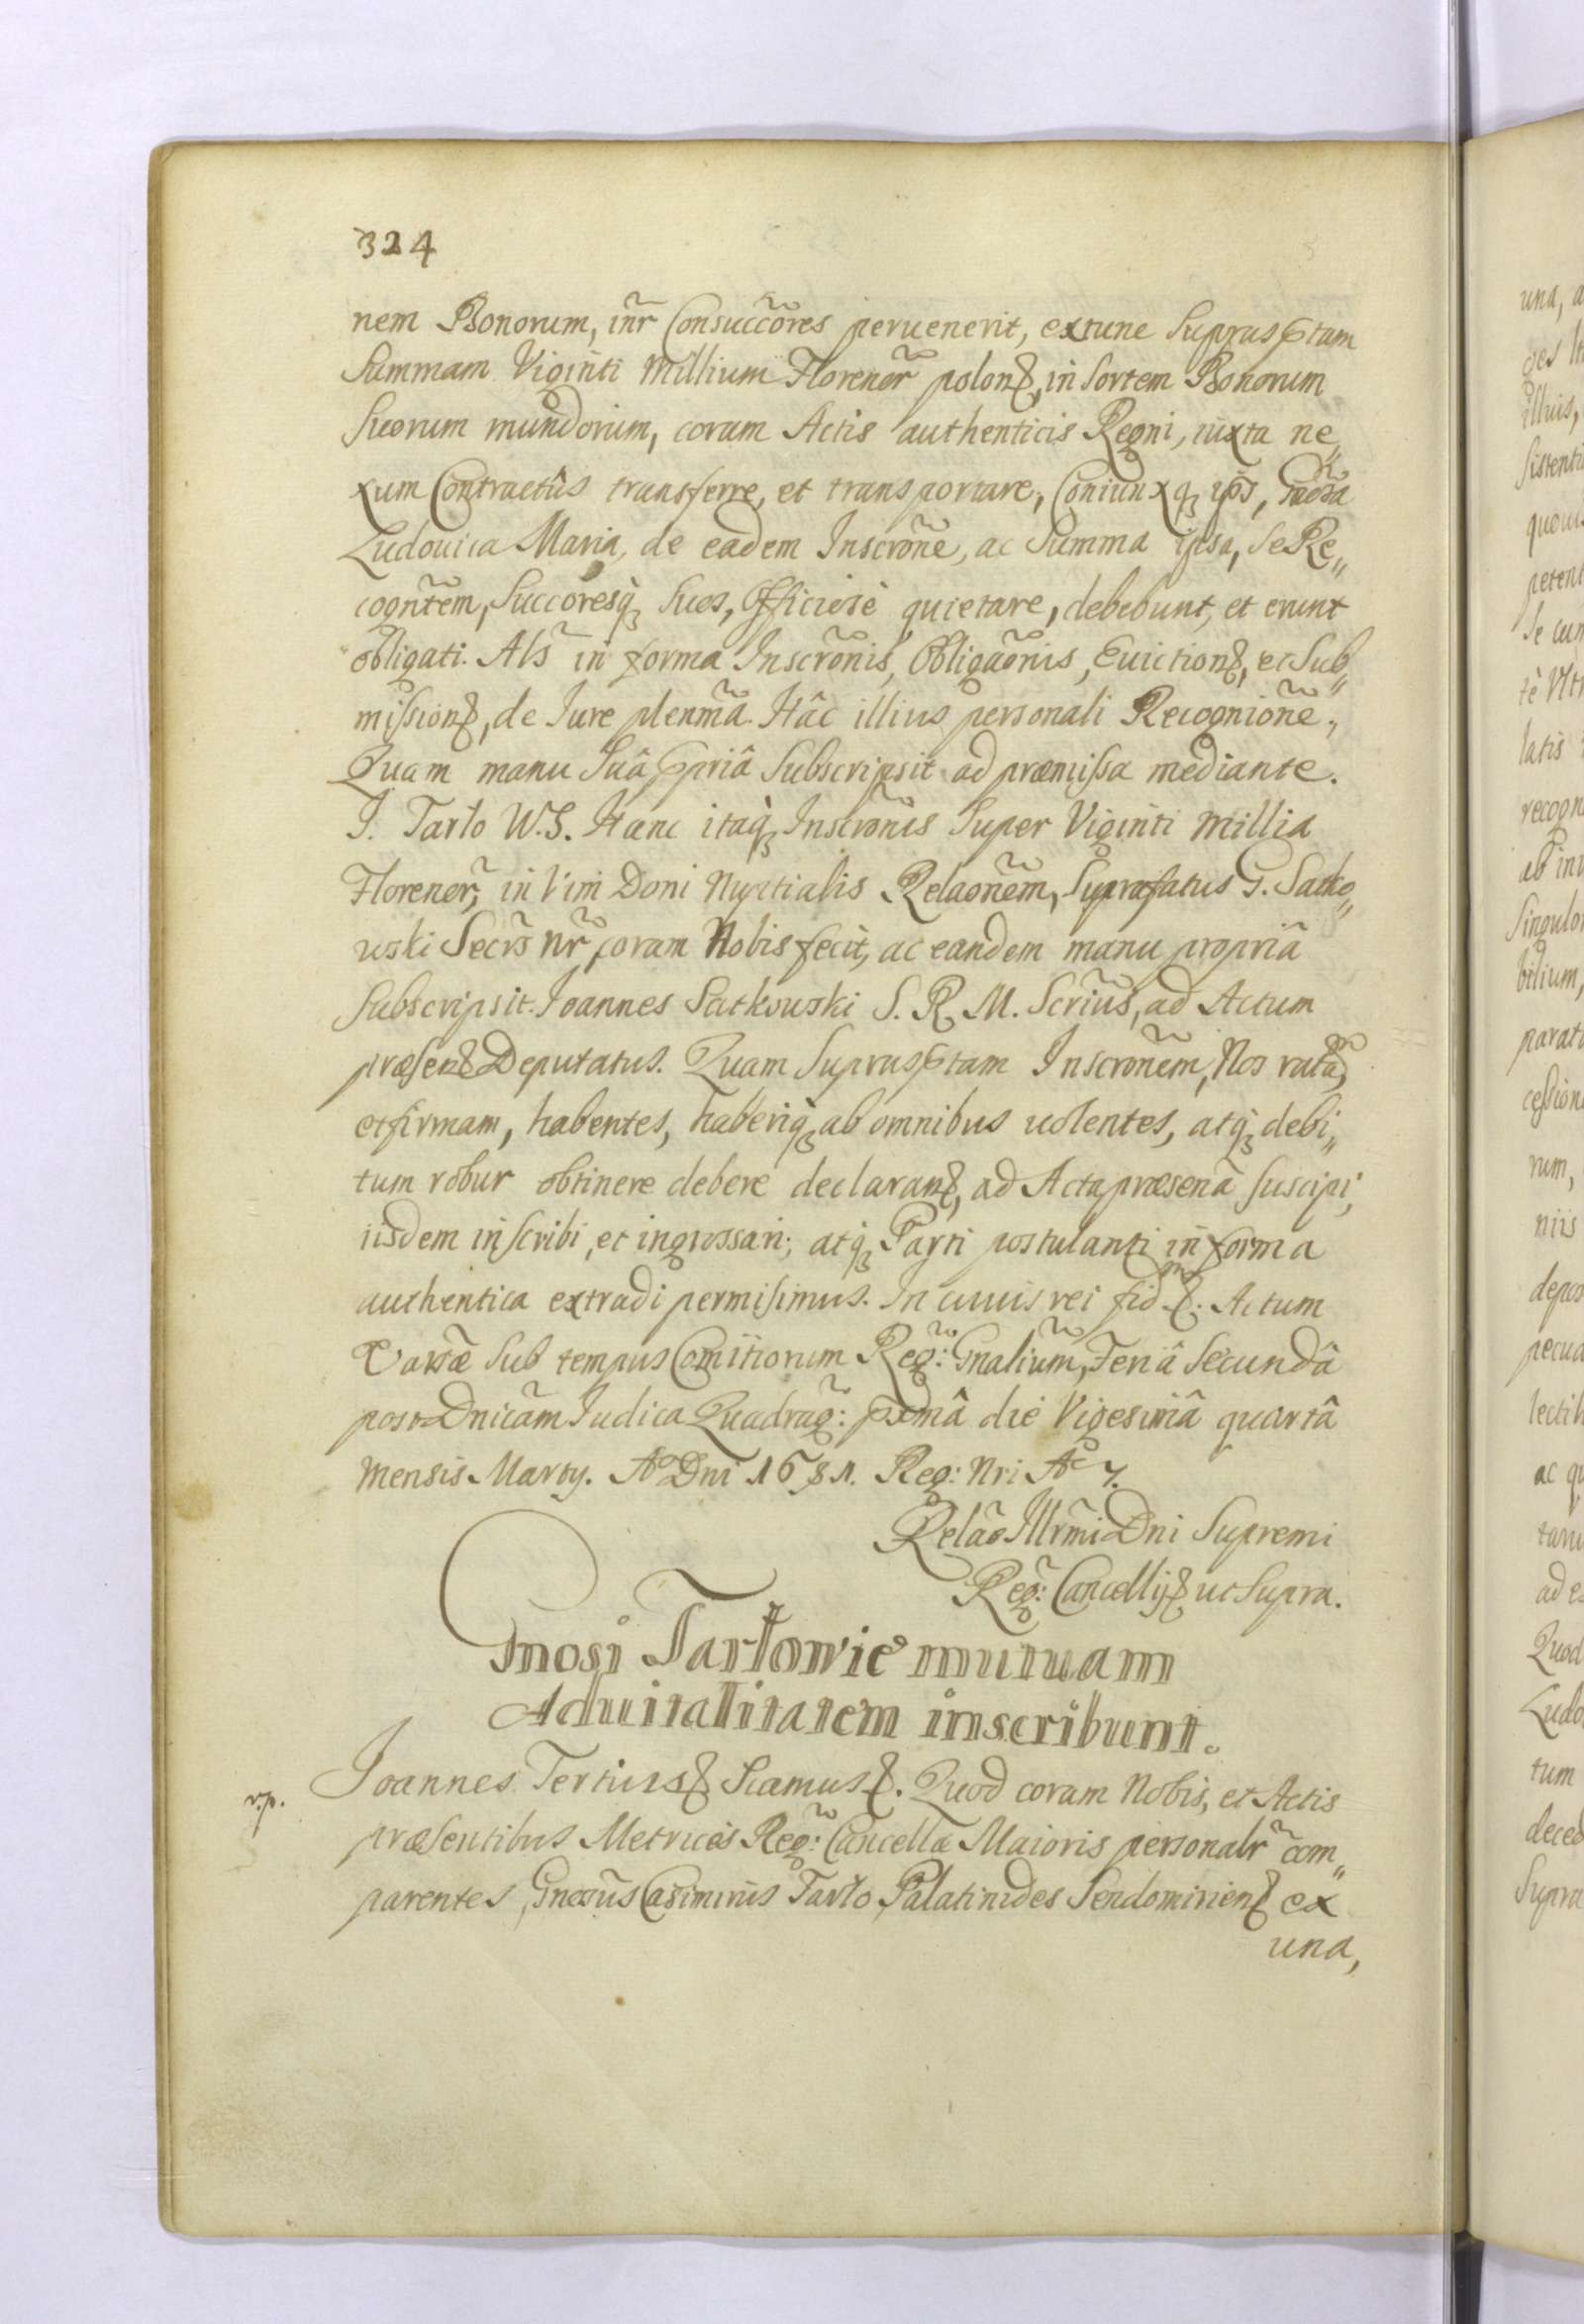 324
nem Bonorum, inr̃ Consuccõres peruenerit, extunc Suprasptam
Summam Viginti Millium Florenor̃ polon&, in Sortem Bonorum
Suorum mundorum, coram Actis authenticis Regni, iuxta ne„
xum Contractûs transferre, et transportare, Coniunxq ip̃s, Gnosa
Ludouica Maria, de eadem Inscrõne, ac Summa ipsa, Se Re„
cogntẽm, Succoresq́ Suos, Officiosè quietare, debebunt, et erunt
obligati. Als̃ in forma Inscrõnis, Obligaõnis, Euiction&, et Sub„
mission&, de Iure plenmã. Hâc illius personali Recogniõne,
Quam manu Suâ ppriâ Subscripsit ad præmissa mediante.
J. Tarło W.S. Hanc itaq́ Inscrõnis Super Viginti Millia
Florenor̃, in Vim Doni Nuptialis Relaõnem, Suprafatus G. Satko„
wski Secrs̃ Nr̃ coram Nobis fecit, ac eandem manu propriâ
Subscripsit. Ioannes Satkowski S. R. M. Scrius̃, ad Actum
præsen& Deputatus. Quam Suprasptam Inscrõnem, Nos ratã,
et firmam, habentes, haberiq́ ab omnibus uolentes, atq́ debi„
tum robur obtinere debere declaran&, ad Acta præsenã suscipi,
iisdem inscribi, et ingrossari; atq́ Parti postulanti in forma
authentica extradi permisimus. In cuius rei fid m &. Actum
Varsæ Sub tempus Comitiorum Reg: Gnalium, Feriâ Secundâ
post Dnicãm Iudica Quadrag: pxmâ die Vigesimâ quartâ
Mensis Marty. Aº Dni 1681. Reg: Nri Aº 7.
Relaõ Illrmi Dni Supremi
Reg: Cancellij& ut Supra.
Gnosi Tarłowie mutuam
Aduitalitatem inscribunt.
r.p.
Ioannes Tertius& Scamus&. Quod coram Nobis, et Actis
præsentibus Metrices Reg: Cancellæ Maioris personalr̃ com„
parentes, Gnosus̃ Casimirus Tarło Palatinides Sendomirien& ex
una,